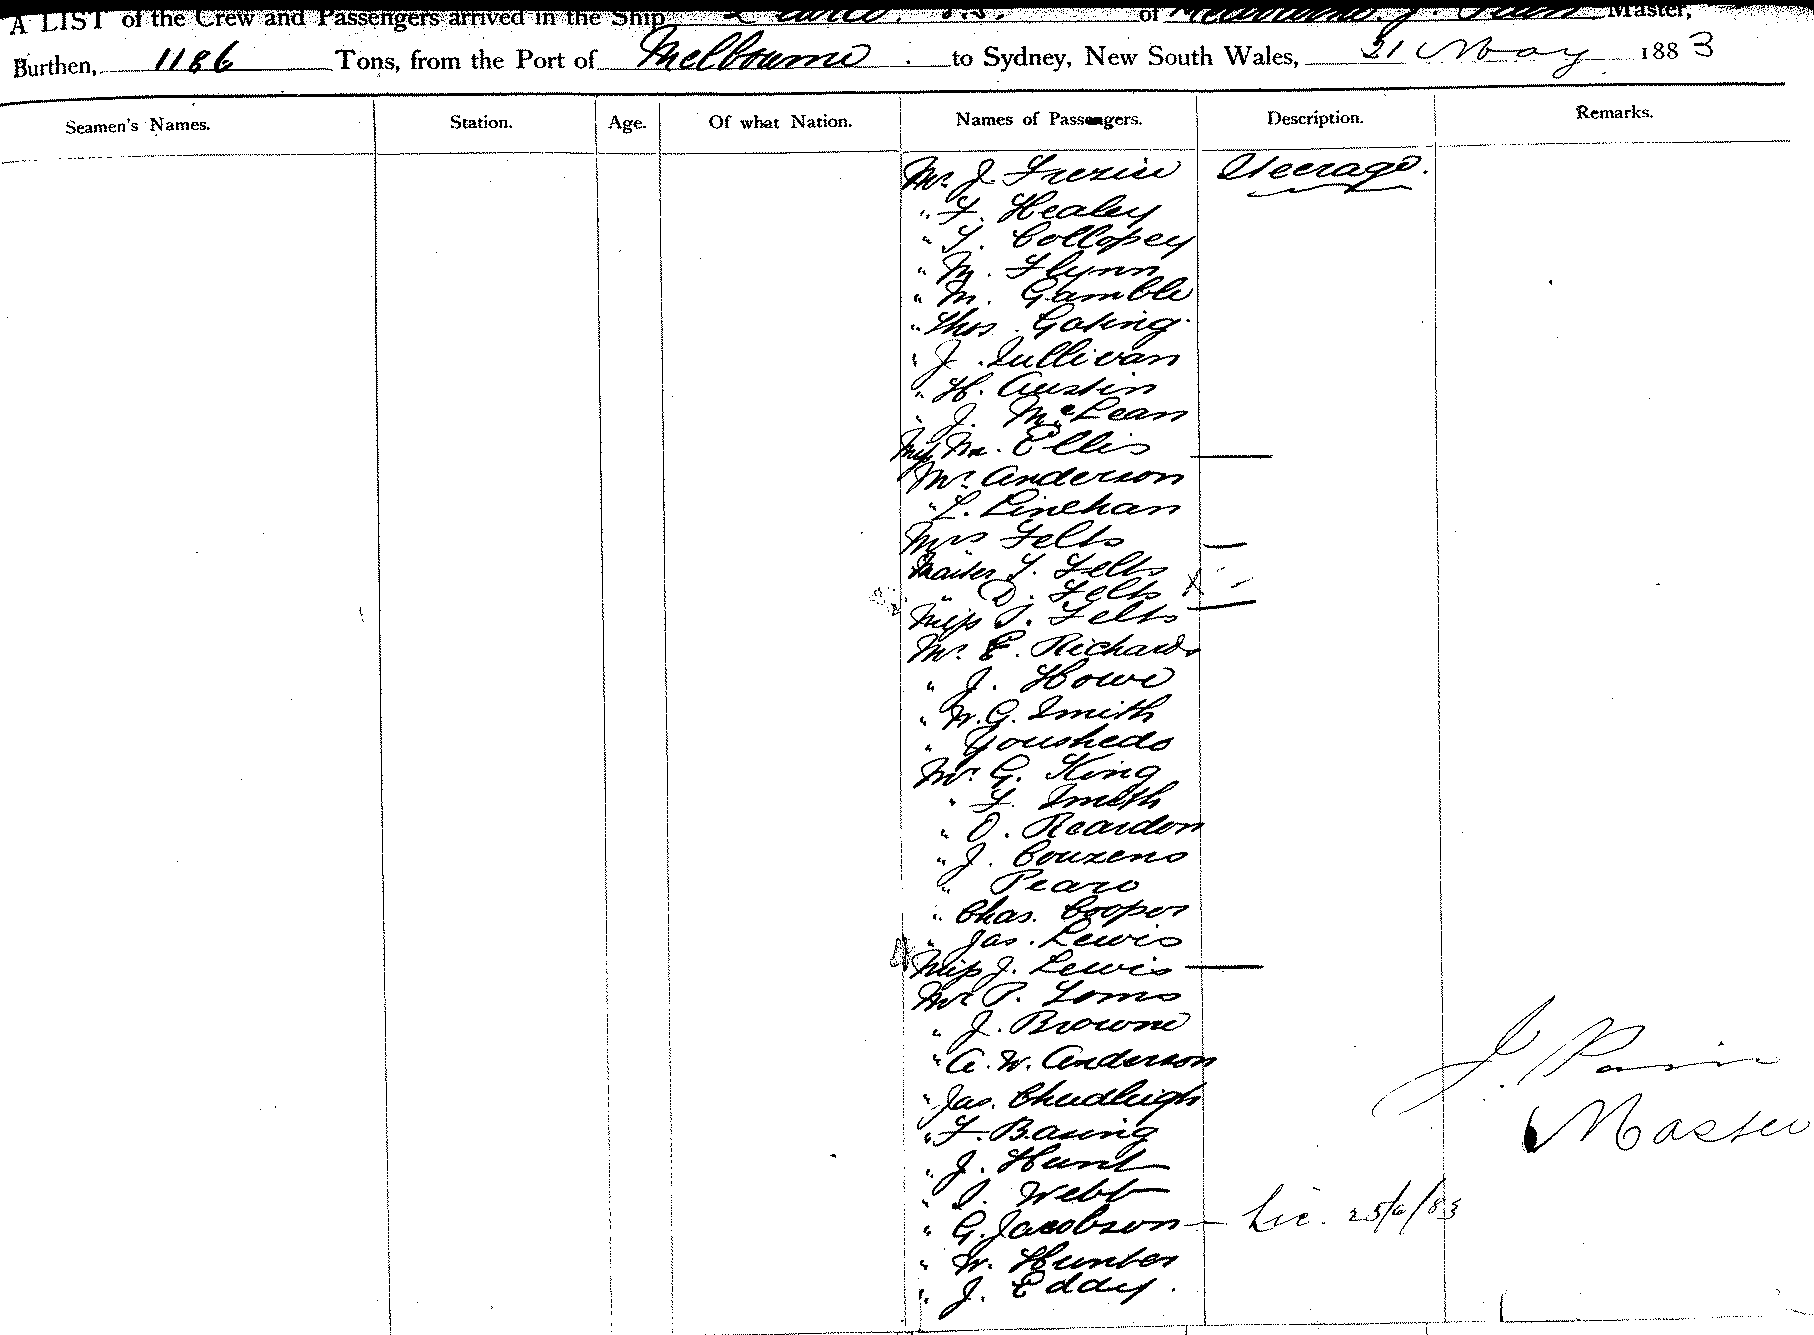 A LIST of the Crew and Passengers arrived in the Ship of Melbourne, J. Master,
Burthen, 1186 Tons, from the Port of Melbourne. to Sydney, New South Wales, 21 May 1883
Seamen's Names. Station. Age. Of what Nation. Names of Passengers. Description. Remarks.
Mr. J. Steerage.
" F. Healey
" T. Collopey
" M. Flynn
" M. Gamble
" Thos. Gating
" J. Sullivan
" H. Austin
" J. McLean
Miss M. Ellis —
Mr. Anderson
" L. Linehan
Mrs Felts —
Master T. Felts
" D. Felts X
Miss S. Felts —
Mr. E. Richards
" J. Howe
" W. G. Smith
" Yousheds
Mr. G. King
" F. Smith
" O. Reardon
" J. Couzens
" Pearo
" Chas. Cooper
" Jas. Lewis
Miss J. Lewis —
Mr. P. Toms
" J. Browne
" A. W. Anderson
" Jas. Chudleigh
" F. Basing
" J. Hunt
" S. Webb
" G. Jacobson — Lic. 25/6/83
" W. Hunter
" J. Eddy.
J.
Master